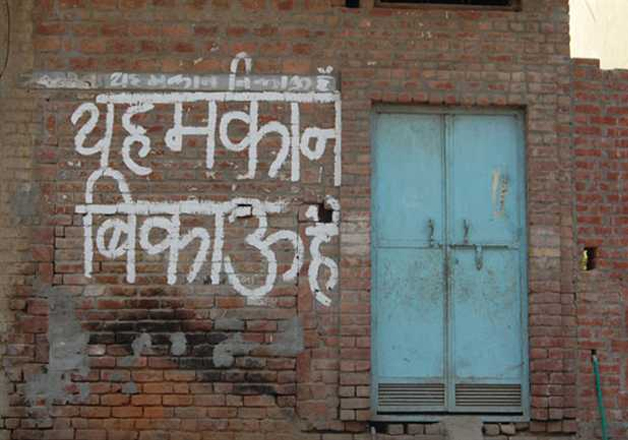 यह मकान बिकाऊ है
यह मकान
बिकाऊ है